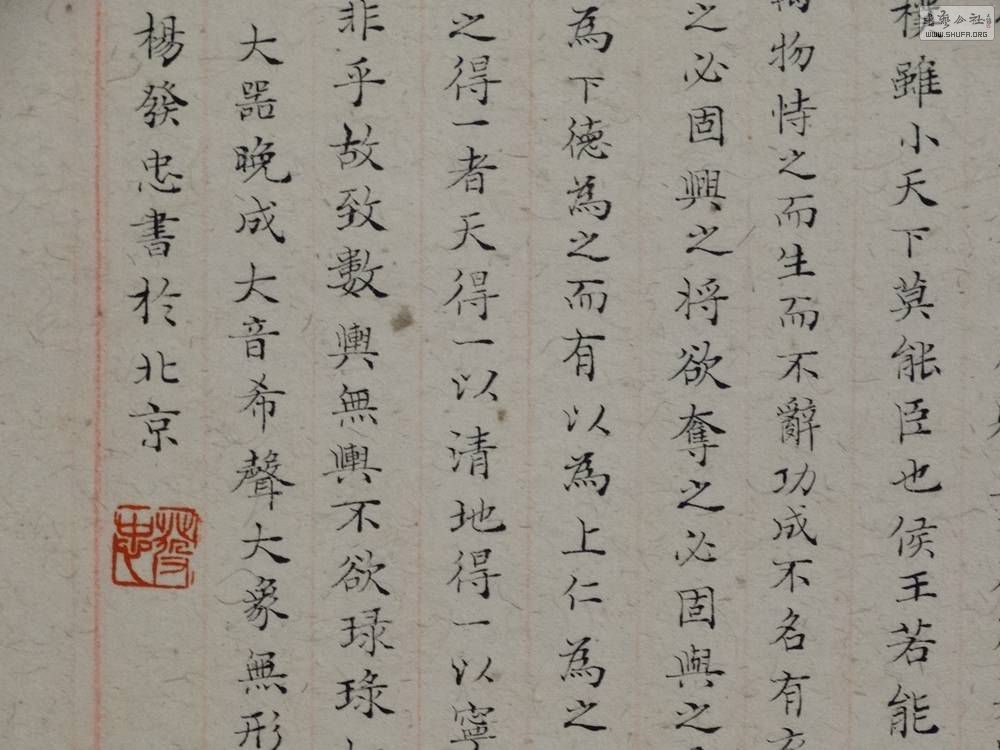 樸雖小天下莫能臣也侯王若能
物恃之而生而不辭功成不名有
之必固興之將欲奪之必固與之
為下德為之而有以為上仁為之
之得一者天得一以清地得一以寧
非乎故致數輿無輿不欲琭琭
大器晚成大音希聲大象無形
楊發忠書於北京
WWW.SHUFA.ORG